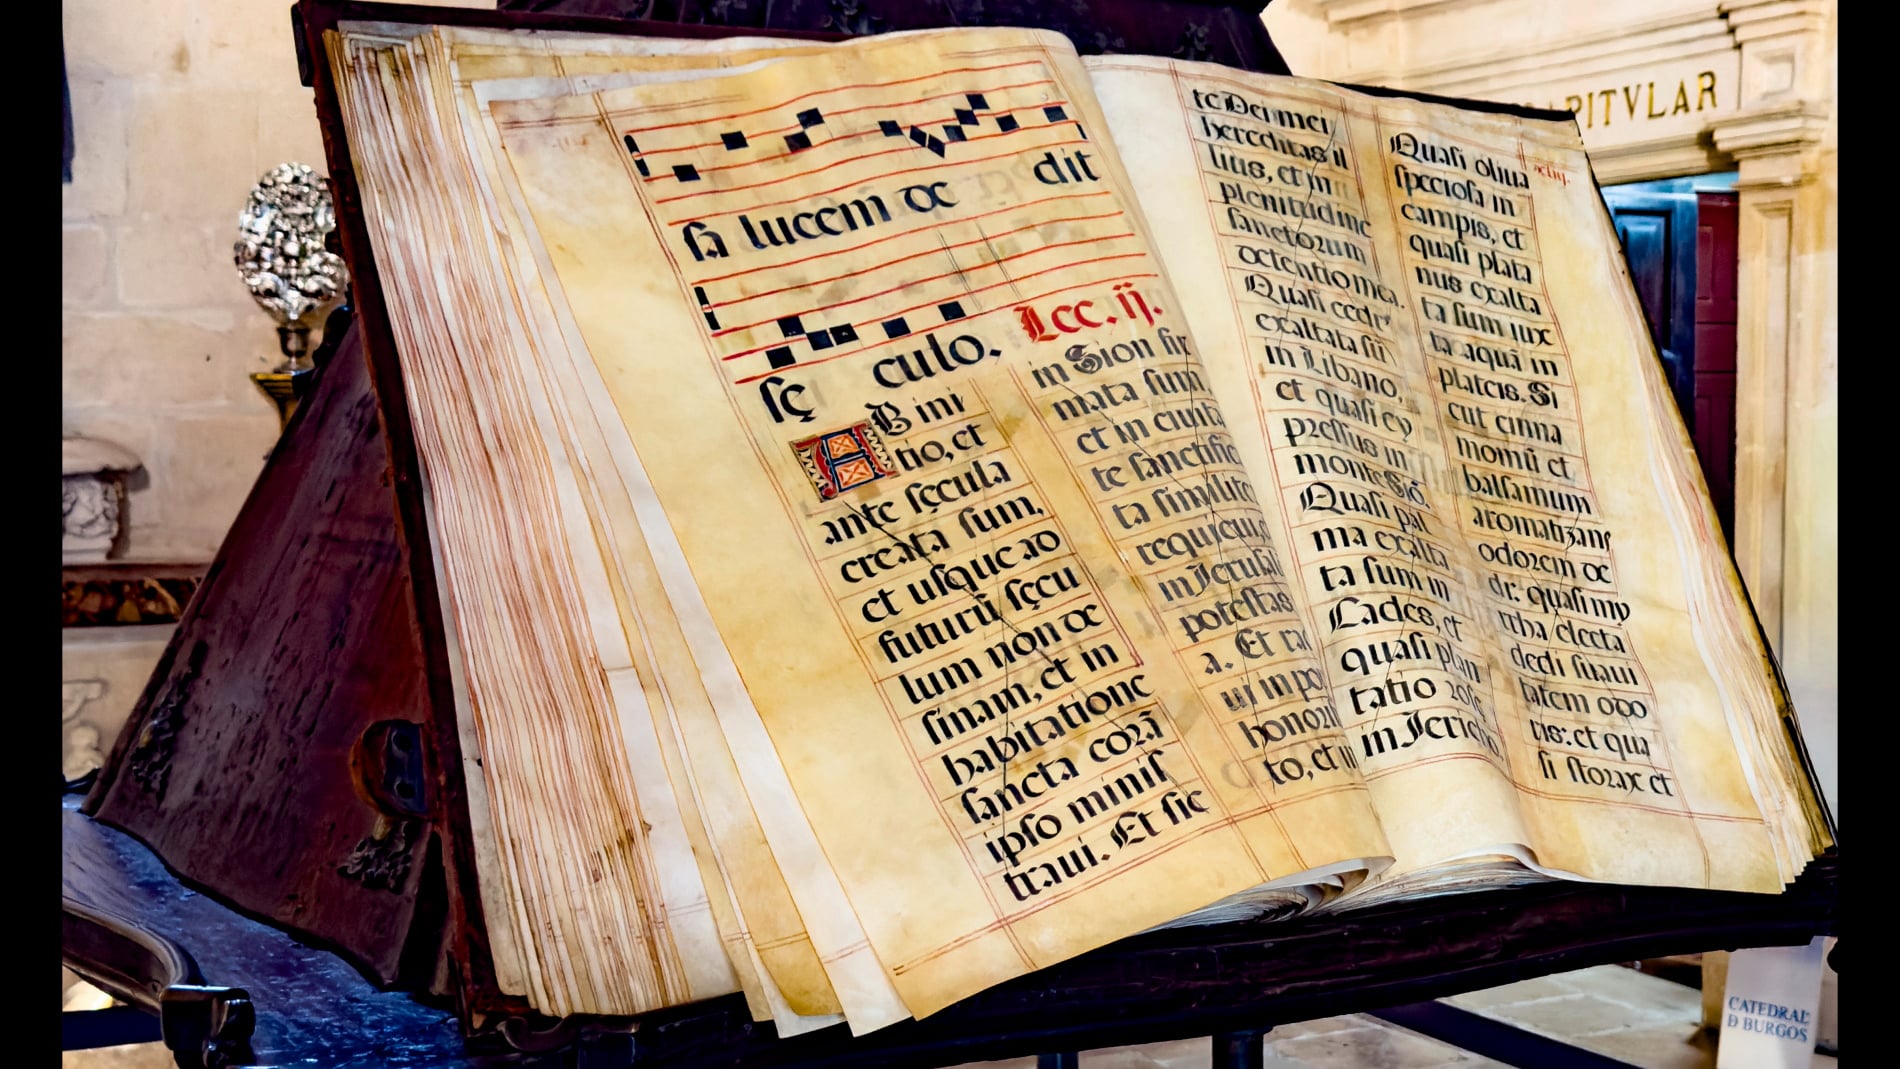 sa lucem de dit
sę culo.
AB ini
tio, et
ante sęcula
creata sum,
et usque ad
futurũ sęcu
lum non de
sinam, et in
habitatione
sancta corã
ipso minis
traui. Et sic
Lec. ij.
in Sion fir
mata sum,
et in ciuita
te sanctific
ta similite
requieui, e
in Jerusalẽ
potestas
a. Et rad
ui in po
honori
to, et in
te Dei mei
hereditas il
lius, et in
plenitudine
sanctorum
detentio mea.
Quasi cedr'
exaltata sũ
in Libano,
et quasi cy
pressus in
monte Siõ.
Quasi pal
ma exalta
ta sum in
Cades, et
quasi plan
tatio rose
in Jericho,
Quasi oliua
speciosa in
campis, et
quasi plata
nus exalta
ta sum iux
ta aquã in
plateis. Si
cut cinna
momũ et
balsamum
aromatizans
odorem de
di: quasi my
rrha electa
dedi suaui
tatem odo
ris: et qua
si storax et
CAPITVLAR
CATEDRAL
D BURGOS